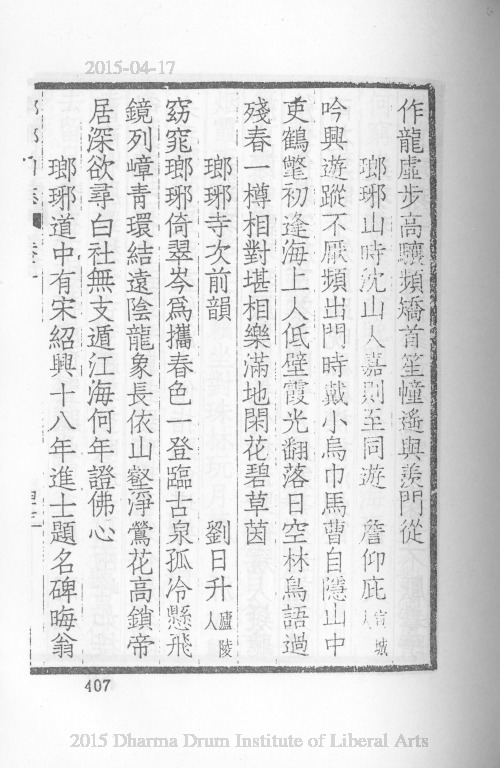 2015-04-17
作龍虛步高驤頻矯首笙幢遙與羨門從
瑯琊山時沈山人嘉則至同遊 詹仰庇 宣城人
吟興遊蹤不厭頻出門時戴小烏巾馬曹自隱山中
吏鶴氅初逢海上人低壁霞光翻落日空林鳥語過
殘春一樽相對堪相樂滿地閑花碧草茵
瑯琊寺次前韻 劉日升 廬陵人
窈窕瑯琊倚翠岑爲攜春色一登臨古泉孤冷懸飛
鏡列嶂靑環結遠陰龍象長依山壑淨鶯花高鎖帝
居深欲尋白社無支遁江海何年證佛心
瑯琊道中有宋紹興十八年進士題名碑晦翁
407
2015 Dharma Drum Institute of Liberal Arts